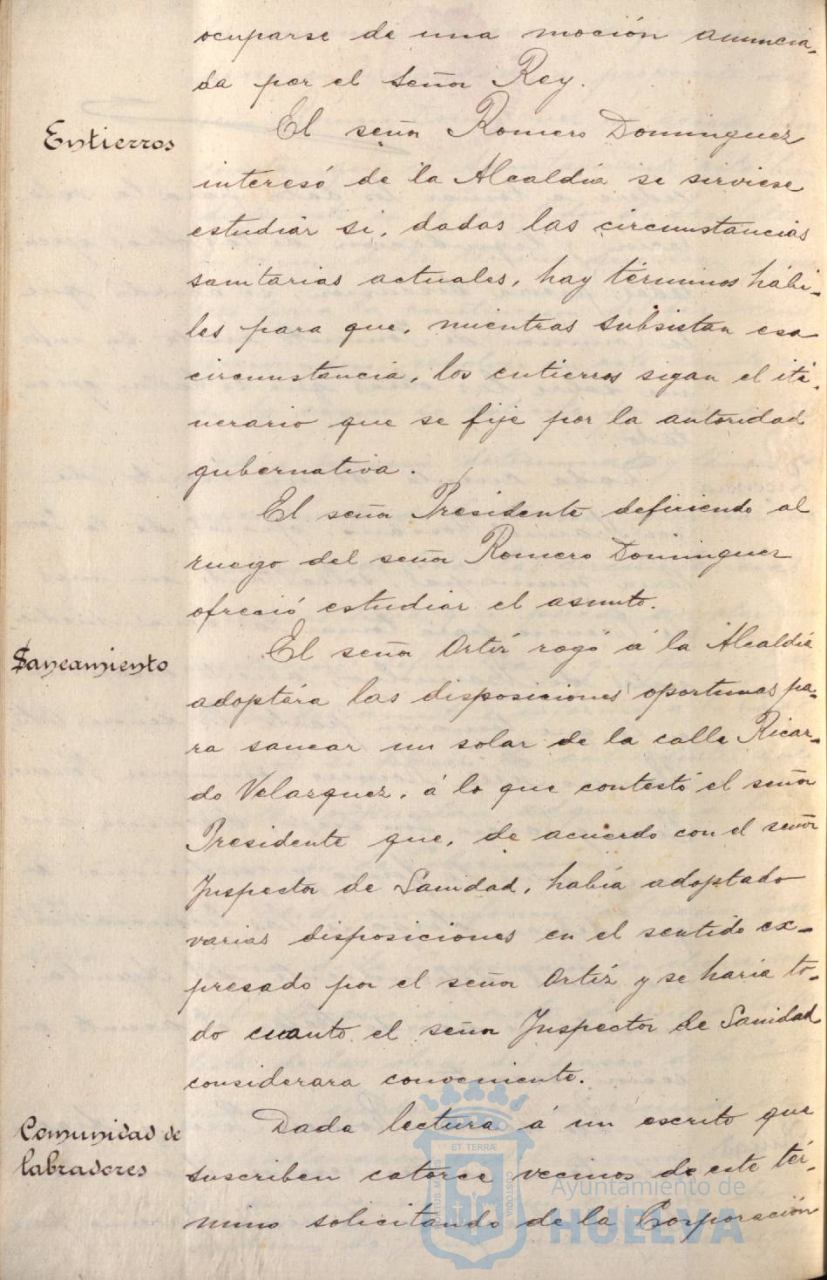 ocuparse de una moción anuncia-
da por el Señor Rey.
Entierros
El señor Romero Dominguez
interesó de la Alcaldía se sirviese
estudiar si, dadas las circunstancias
sanitarias actuales, hay términos hábi-
les para que, mientras subsistan esa
circunstancia, los entierros sigan el iti-
nerario que se fije por la autoridad
gubernativa.
El señor Presidente defiriendo al
ruego del señor Romero Dominguez
ofreció estudiar el asunto.
Saneamiento
El señor Ortíz rogó á la Alcaldía
adoptára las disposiciones oportunas pa-
ra sanear un solar de la calle Ricar-
do Velazquez, á lo que contestó el señor
Presidente que, de acuerdo con el señor
Inspector de Sanidad, había adoptado
varias disposiciones en el sentido ex-
presado por el señor Ortíz y se haría to-
do cuanto el señor Inspector de Sanidad
considerara conveniente.
Comunidad de
labradores
Dada lectura á un escrito que
suscriben catorce vecinos de este tér-
mino solicitando de la Corporación
ET TERRÆ
Ayuntamiento de
HUELVA